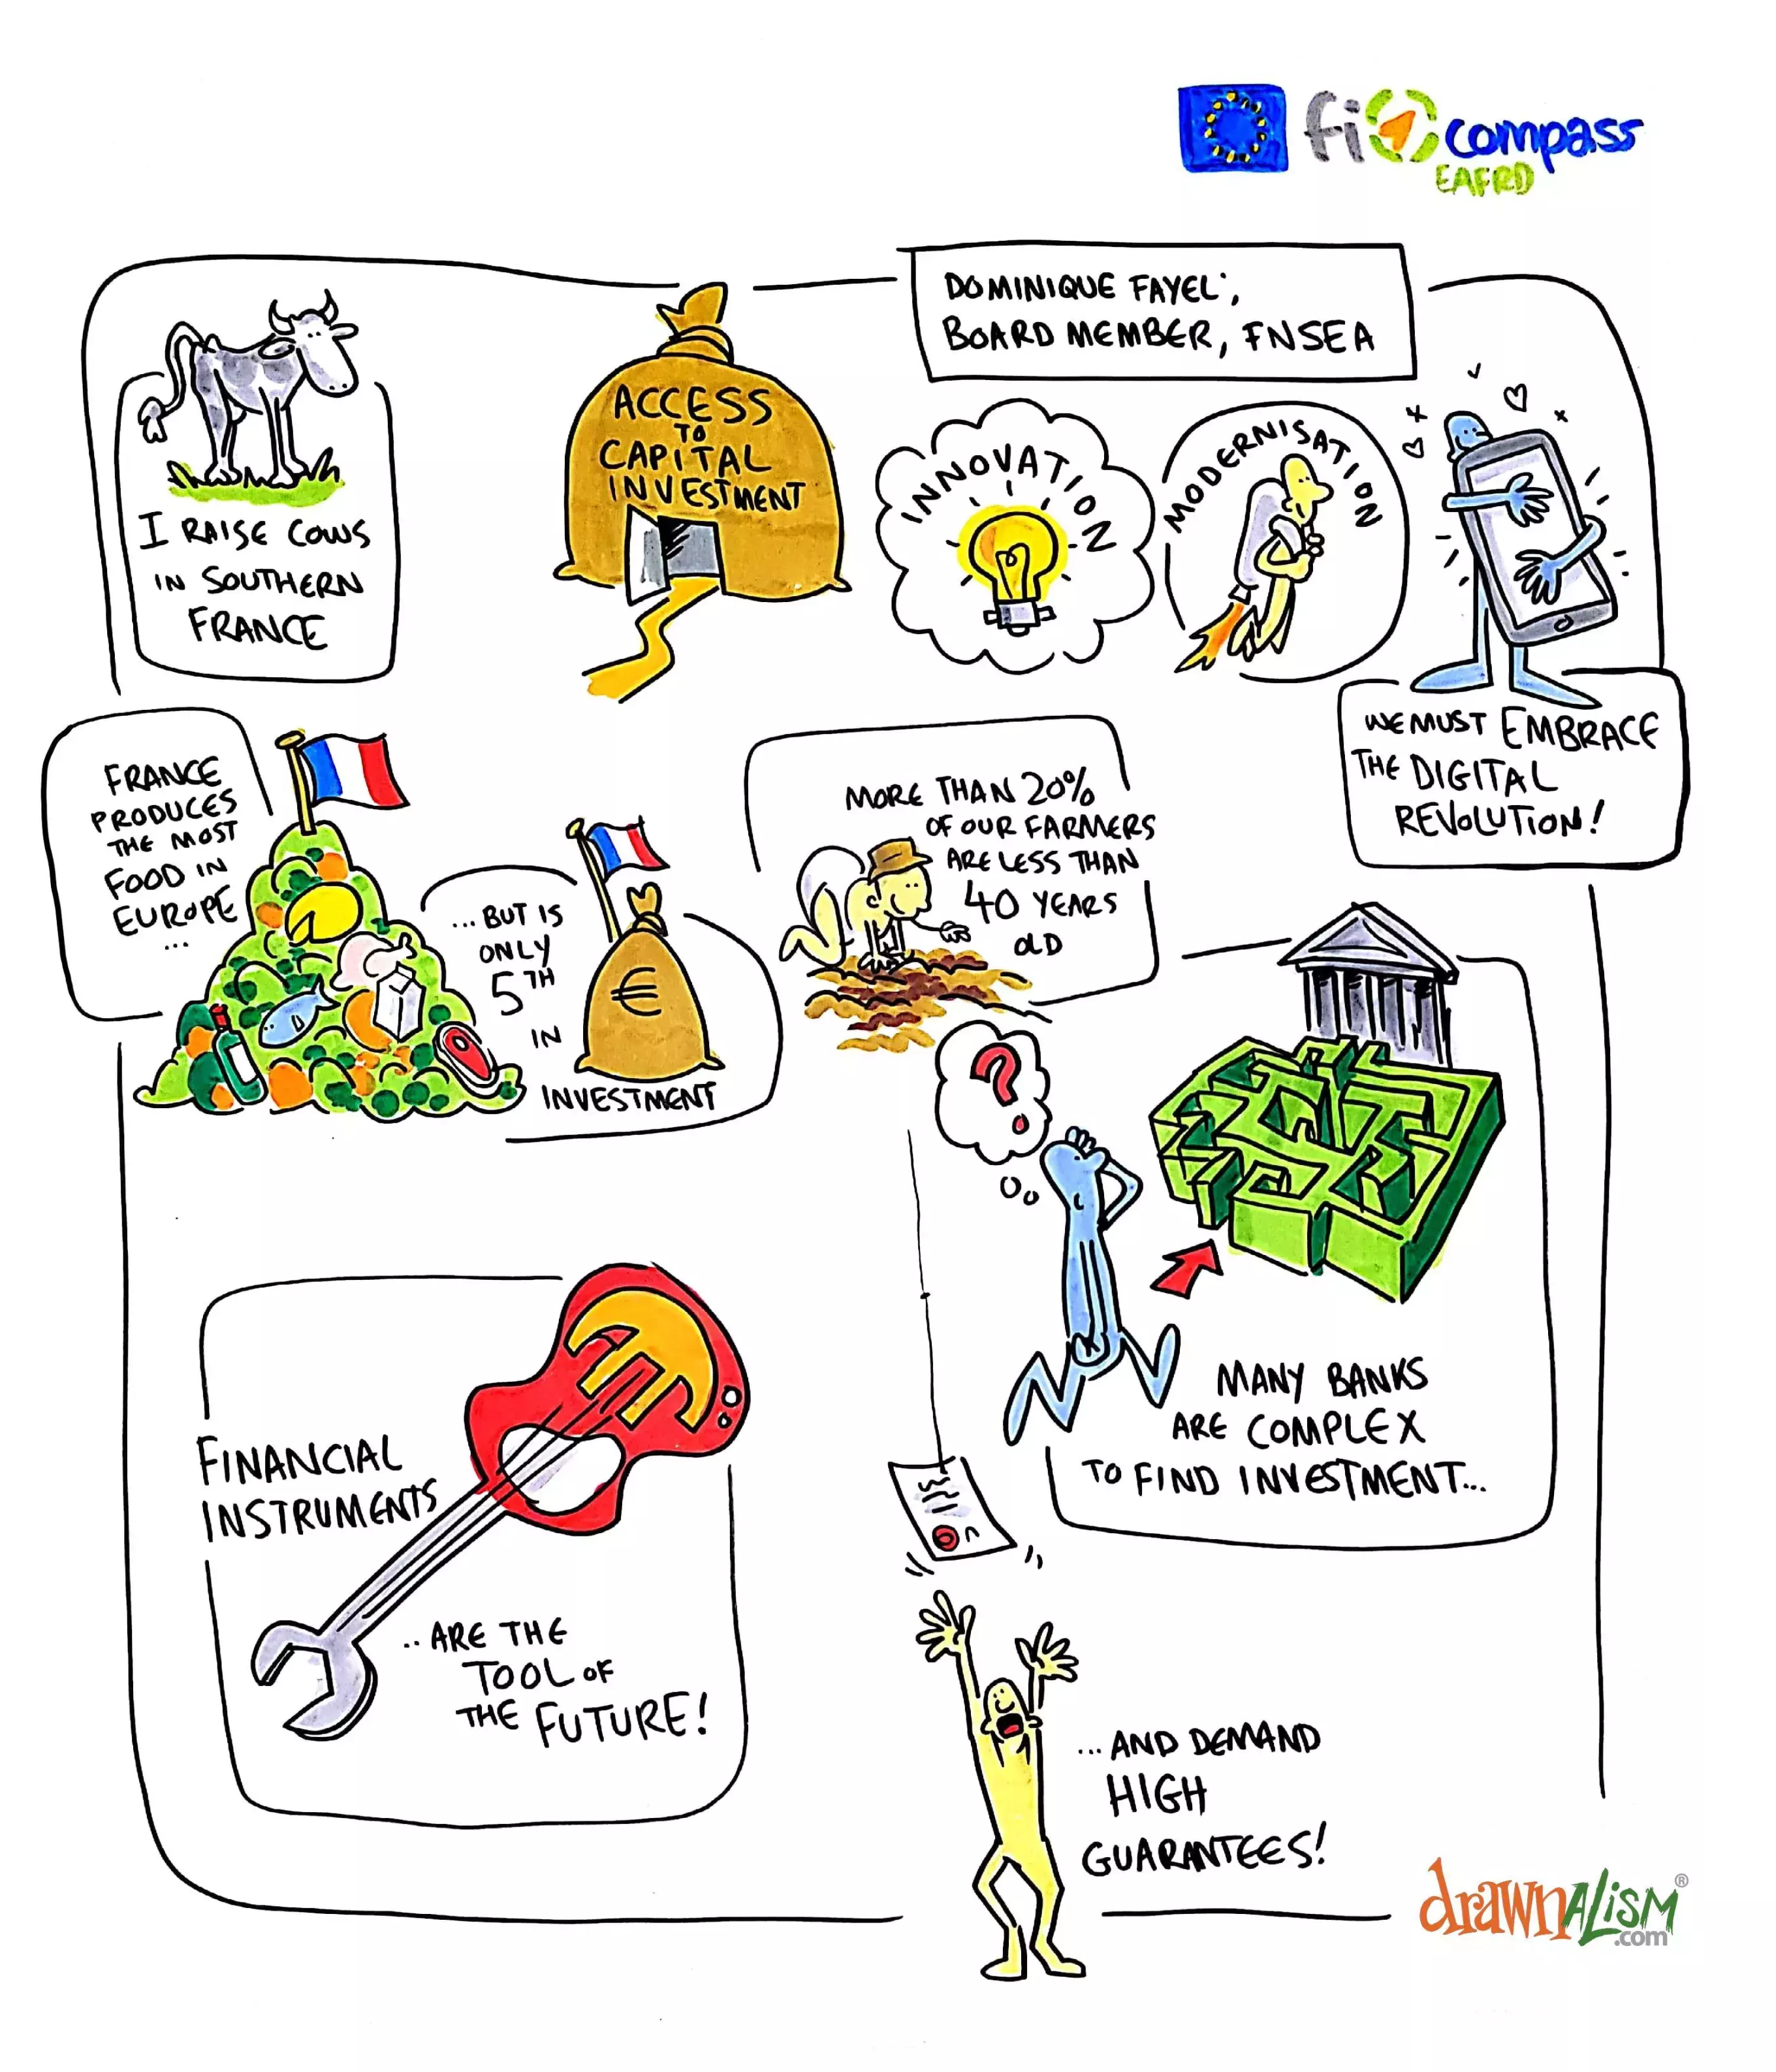 fi compass
EAFRD
DOMINIQUE FAYEL,
BOARD MEMBER, FNSEA
I RAISE COWS
IN SOUTHERN
FRANCE
ACCESS
TO
CAPITAL
INVESTMENT
INNOVATION
MODERNISATION
WE MUST EMBRACE
THE DIGITAL
REVOLUTION!
FRANCE
PRODUCES
THE MOST
FOOD IN
EUROPE
...
...BUT IS
ONLY
5TH
IN
€
INVESTMENT
MORE THAN 20%
OF OUR FARMERS
ARE LESS THAN
40 YEARS
OLD
?
MANY BANKS
ARE COMPLEX
TO FIND INVESTMENT...
...AND DEMAND
HIGH
GUARANTEES!
FINANCIAL
INSTRUMENTS
€
..ARE THE
TOOL OF
THE FUTURE!
drawnALiSM®
.com